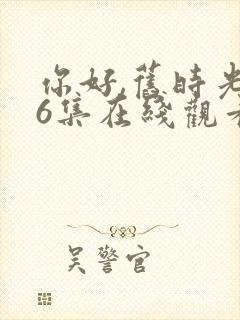 你好,舊時光
6集在綫觀看
吴警官